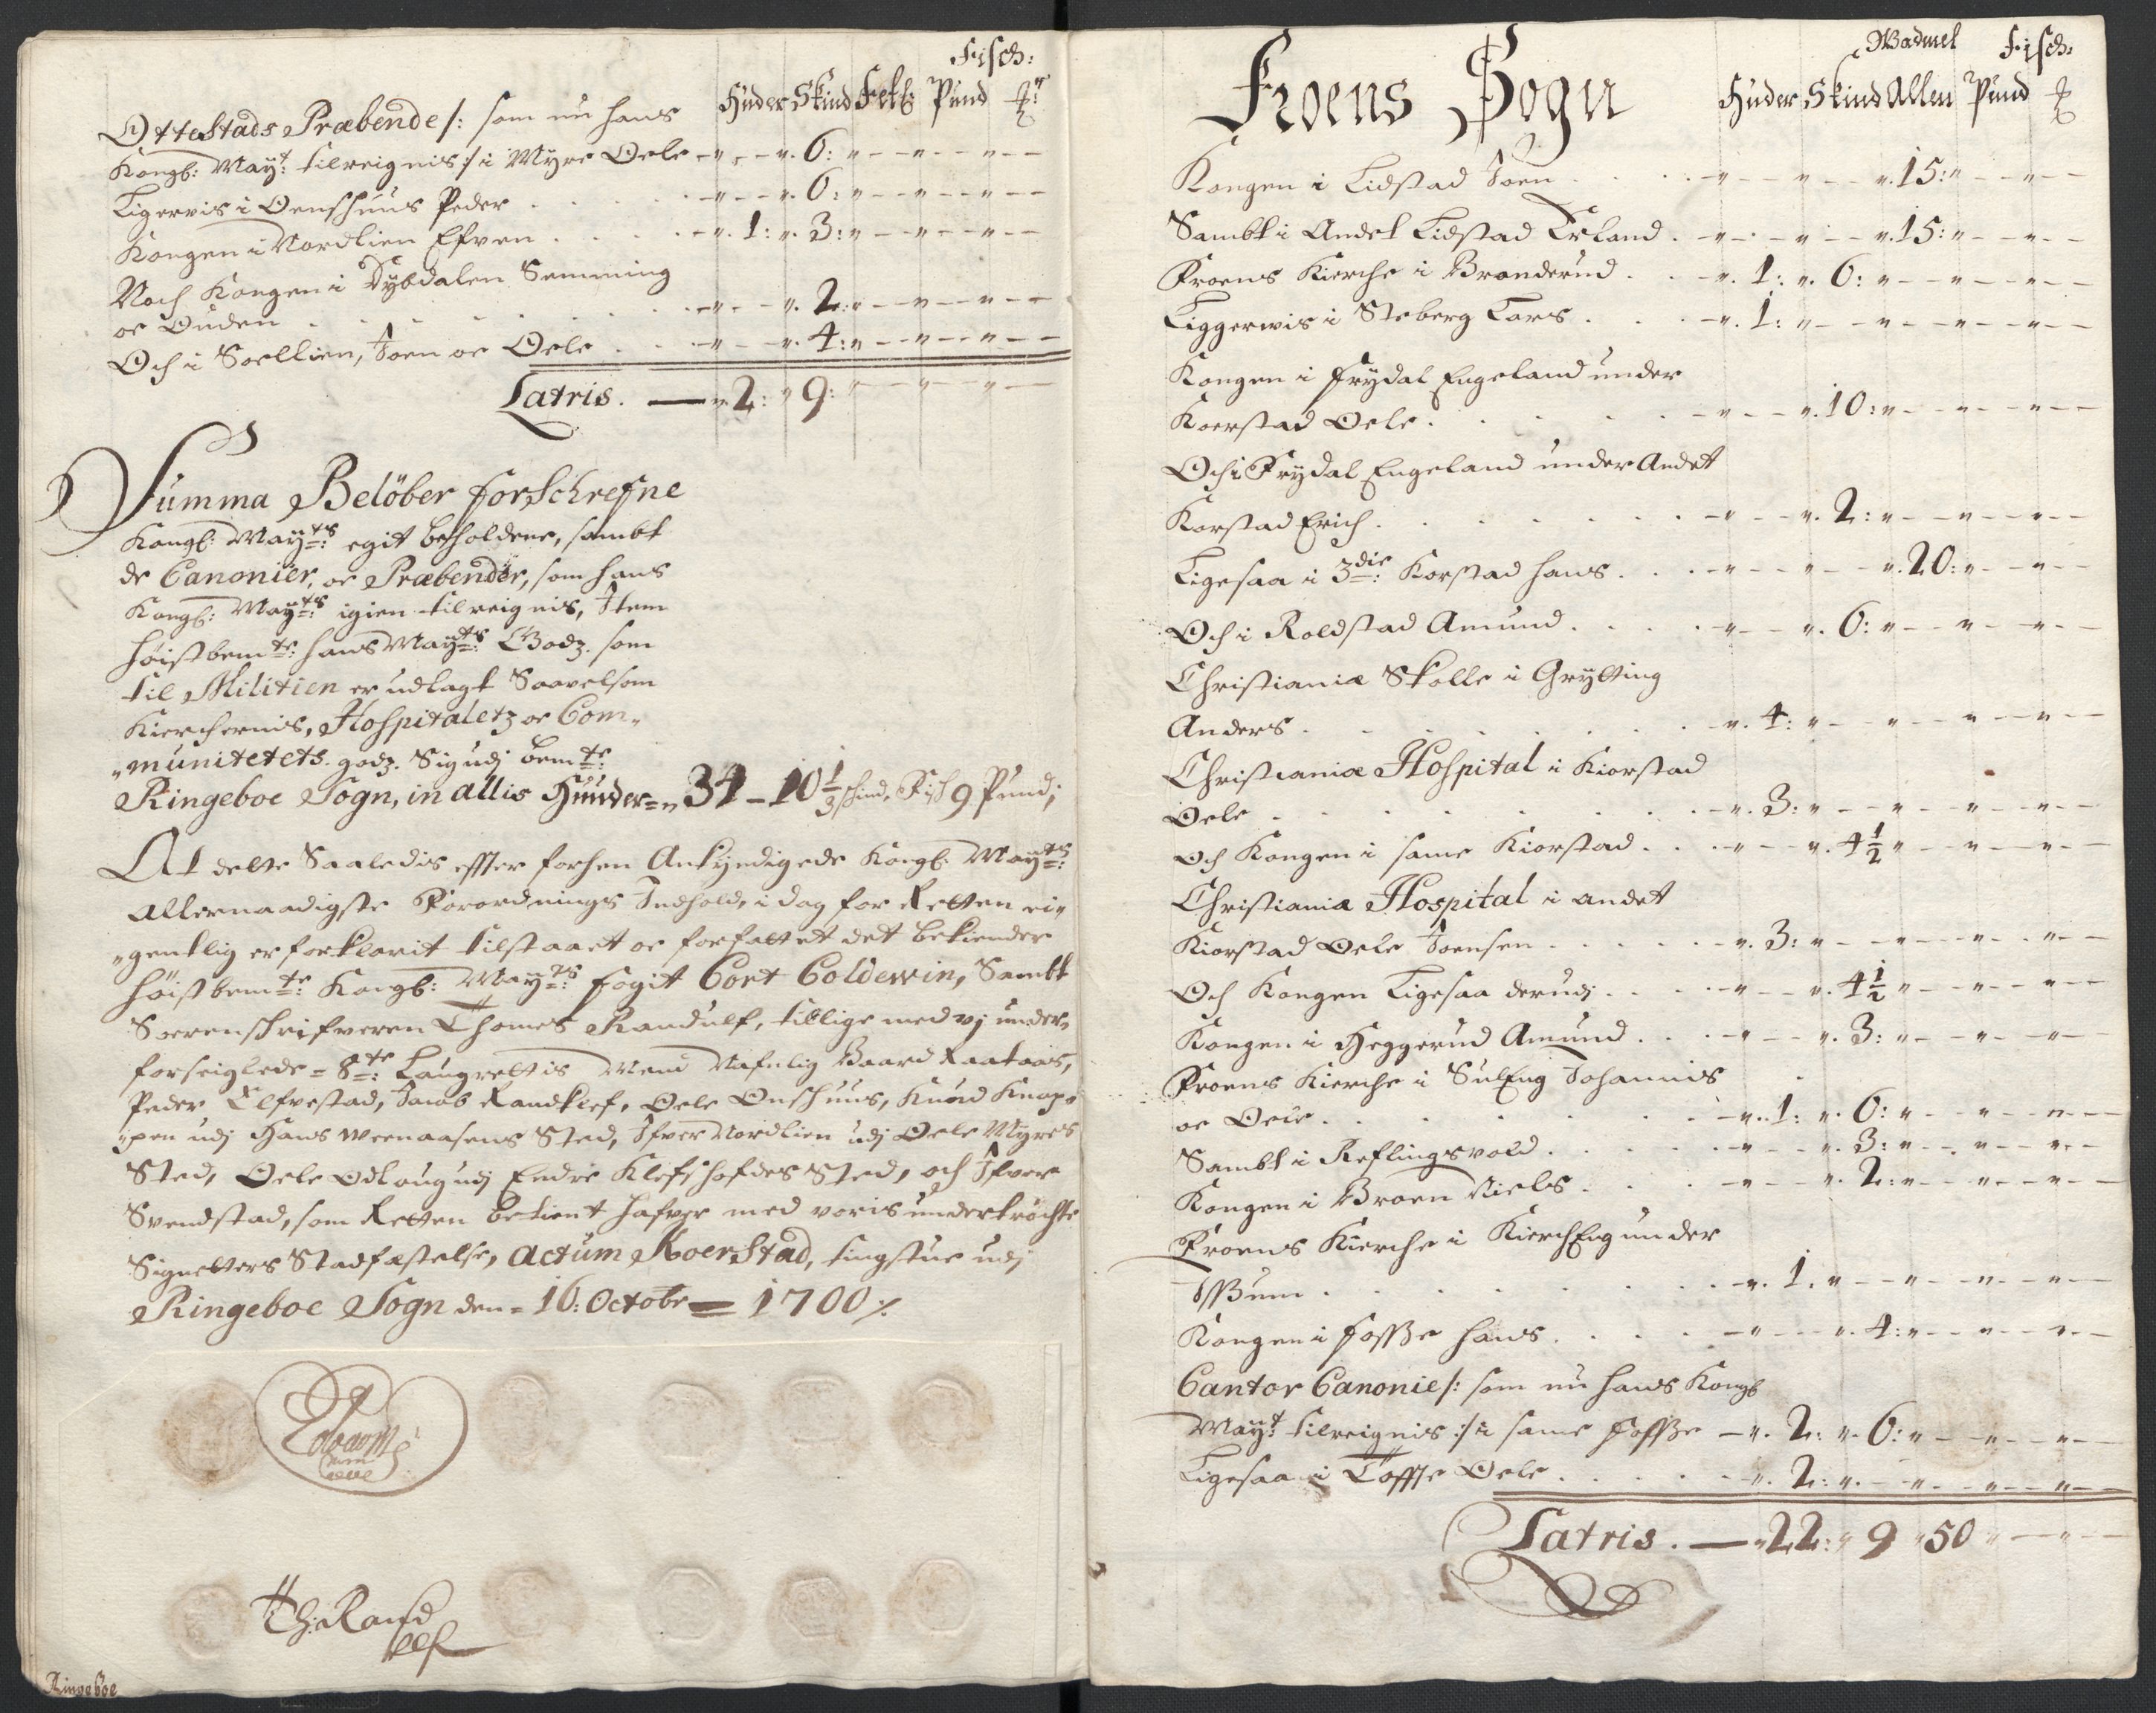 Fisch:
Huder Skind Fell: Pund
Ottestads Præbende /: som nu hans
Kongl: Mayt: tilreignis :/ i Myre Oele - - - 6: - - -
Ligervis i Oenshuus Peder . . . - - 6: - - -
Kongen i Nordlien Efven . . . 1: 3: - - -
Noch Kongen i Dybdalen Semming
oc Ouden . . . . - - 2: - - -
Och i Soellien, Joen oc Oele . . - - 4: - - -
Latris. — 2: 9:
Summa Belöber forschrefne
Kongl: Mayts: egit beholdene, sambt
de Canonier, oc Præbender, som hans
Kongl: Mayts: igien tilreignis, Item
höistbemte: hans Mayts: Godz. som
til Militien er udlagt Saavelsom
Kirchernis, Hospitaletz oc Com„
„munitetets. godz. Sig udj bemte:
Ringeboe Sogn, in allis Huuder = 34 - 10 1/3 schind, Fisch 9 Pund;
At dette Saaledis effter forhen Ankyndigede Kongl: Mayts:
allernaadigste Forordnings Indhold, i dag for Retten ei„
„gentlig er forklarit tilstaaet oc forfattet det bekiender
höistbemte: Kongl: Mayts: fogit Cort Coldewin, Sambt
Soerenschrifveren Thomes Randulf, tillige med vj under„
forseiglede = 8te: Laugrettis Mend Nafnlig Baard Raataas,
Peder Elfvestad, Jacob Randklef, Oele Onshuus, Knud Knap„
„pen udj Hans Weenaasens Sted, Ifver Nordlien udj Oele Myres
Sted, Oele Odloug udj Endre Klefshofdes Sted, och Ifver
Svendstad, som Retten betient hafver med voris undertröchte
Signetters Stadfæstelse, Actum Koerstad, tingstue udj
Ringeboe Sogn den = 16: Octobr = 1700 ./.
Th: Rand
ulf
Ringeboe
Froens Sogn
Wadmel Fisch:
Huder Skind Allen Pund
Kongen i Lidstad Joen . . . - - - 15: - -
Sambt i Andet Lidstad Erland . - - - 15: - -
Froens Kierche i Branderud . . 1: 6: - - -
Liggerwis i Steberg Lars . . . 1: - - - -
Kongen i Frydal Engeland under
Koerstad Oele . . . . - - 10: - - -
Och i Frydal Engeland under Andet
Korstad Erich . . . . - - 2: - - -
Ligesaa i 3die: Korstad Hans . . - - - 20: - -
Och i Roldstad Amund . . . - - 6: - - -
Christianiæ Skolle i Grytting
Anders . . . . . 4: - - - -
Christianiæ Hospital i Kiorstad
Oele . . . . . . 3: - - - -
Och Kongen i same Kiorstad . . - - 4 1/2 - - -
Christianiæ Hospital i andet
Kiorstad Oele Joensen . . . . 3: - - - -
Och Kongen Ligesaa derudj . . . - - 4 1/2 - - -
Kongen i Heggerud Amund . . . - - 3: - - -
Froens Kierche i SulEng Johannis
oc Oele . . . . . . 1: 6: - - -
Sambt i Reflingsvold . . . . - - 3: - - -
Kongen i Broen Niels . . . - - 2: - - -
Froens Kierche i KierchEng under
. . . . . . 1. - - - -
Kongen i Fosse Hans . . . . - - 4: - - -
Cantor Canonie /: som nu hans Kongl
Mayt: tilreignis :/ i same Fosse - 2: 6: - - -
Ligesaa i Töffte Oele . . . . 2: - - - -
Latris. — 22: 9 50 - - -